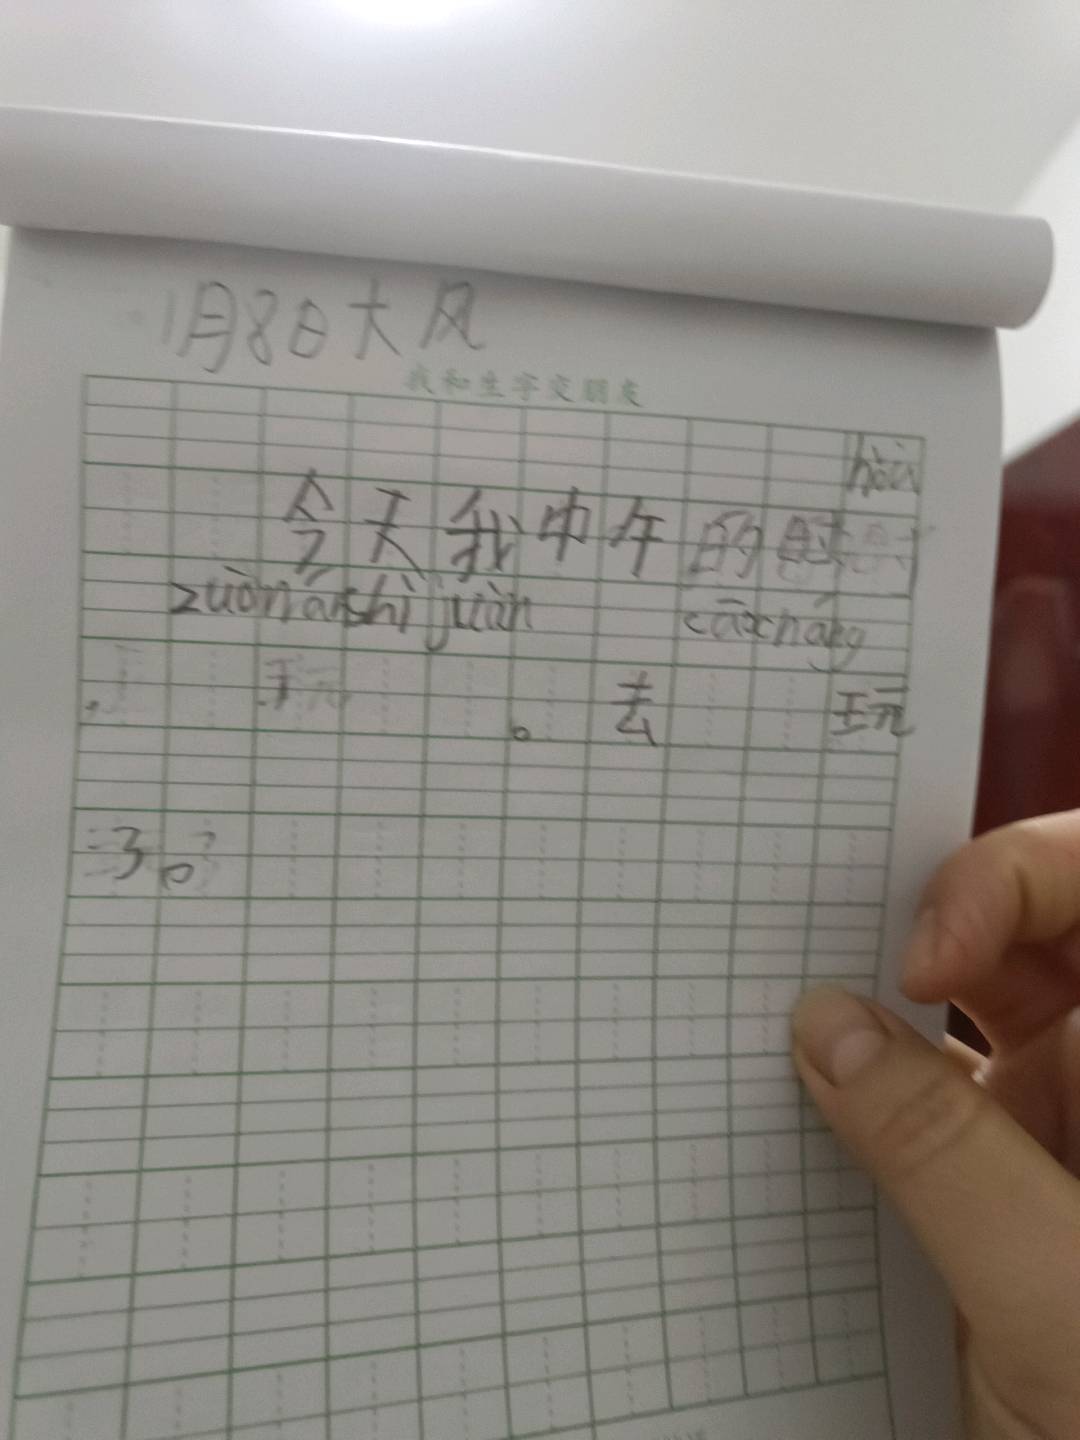 1月8日大风
我和生字交朋友
hòu
今天我中午的时
zuònánshì juàn cāochǎng
, 。 去 玩
了。